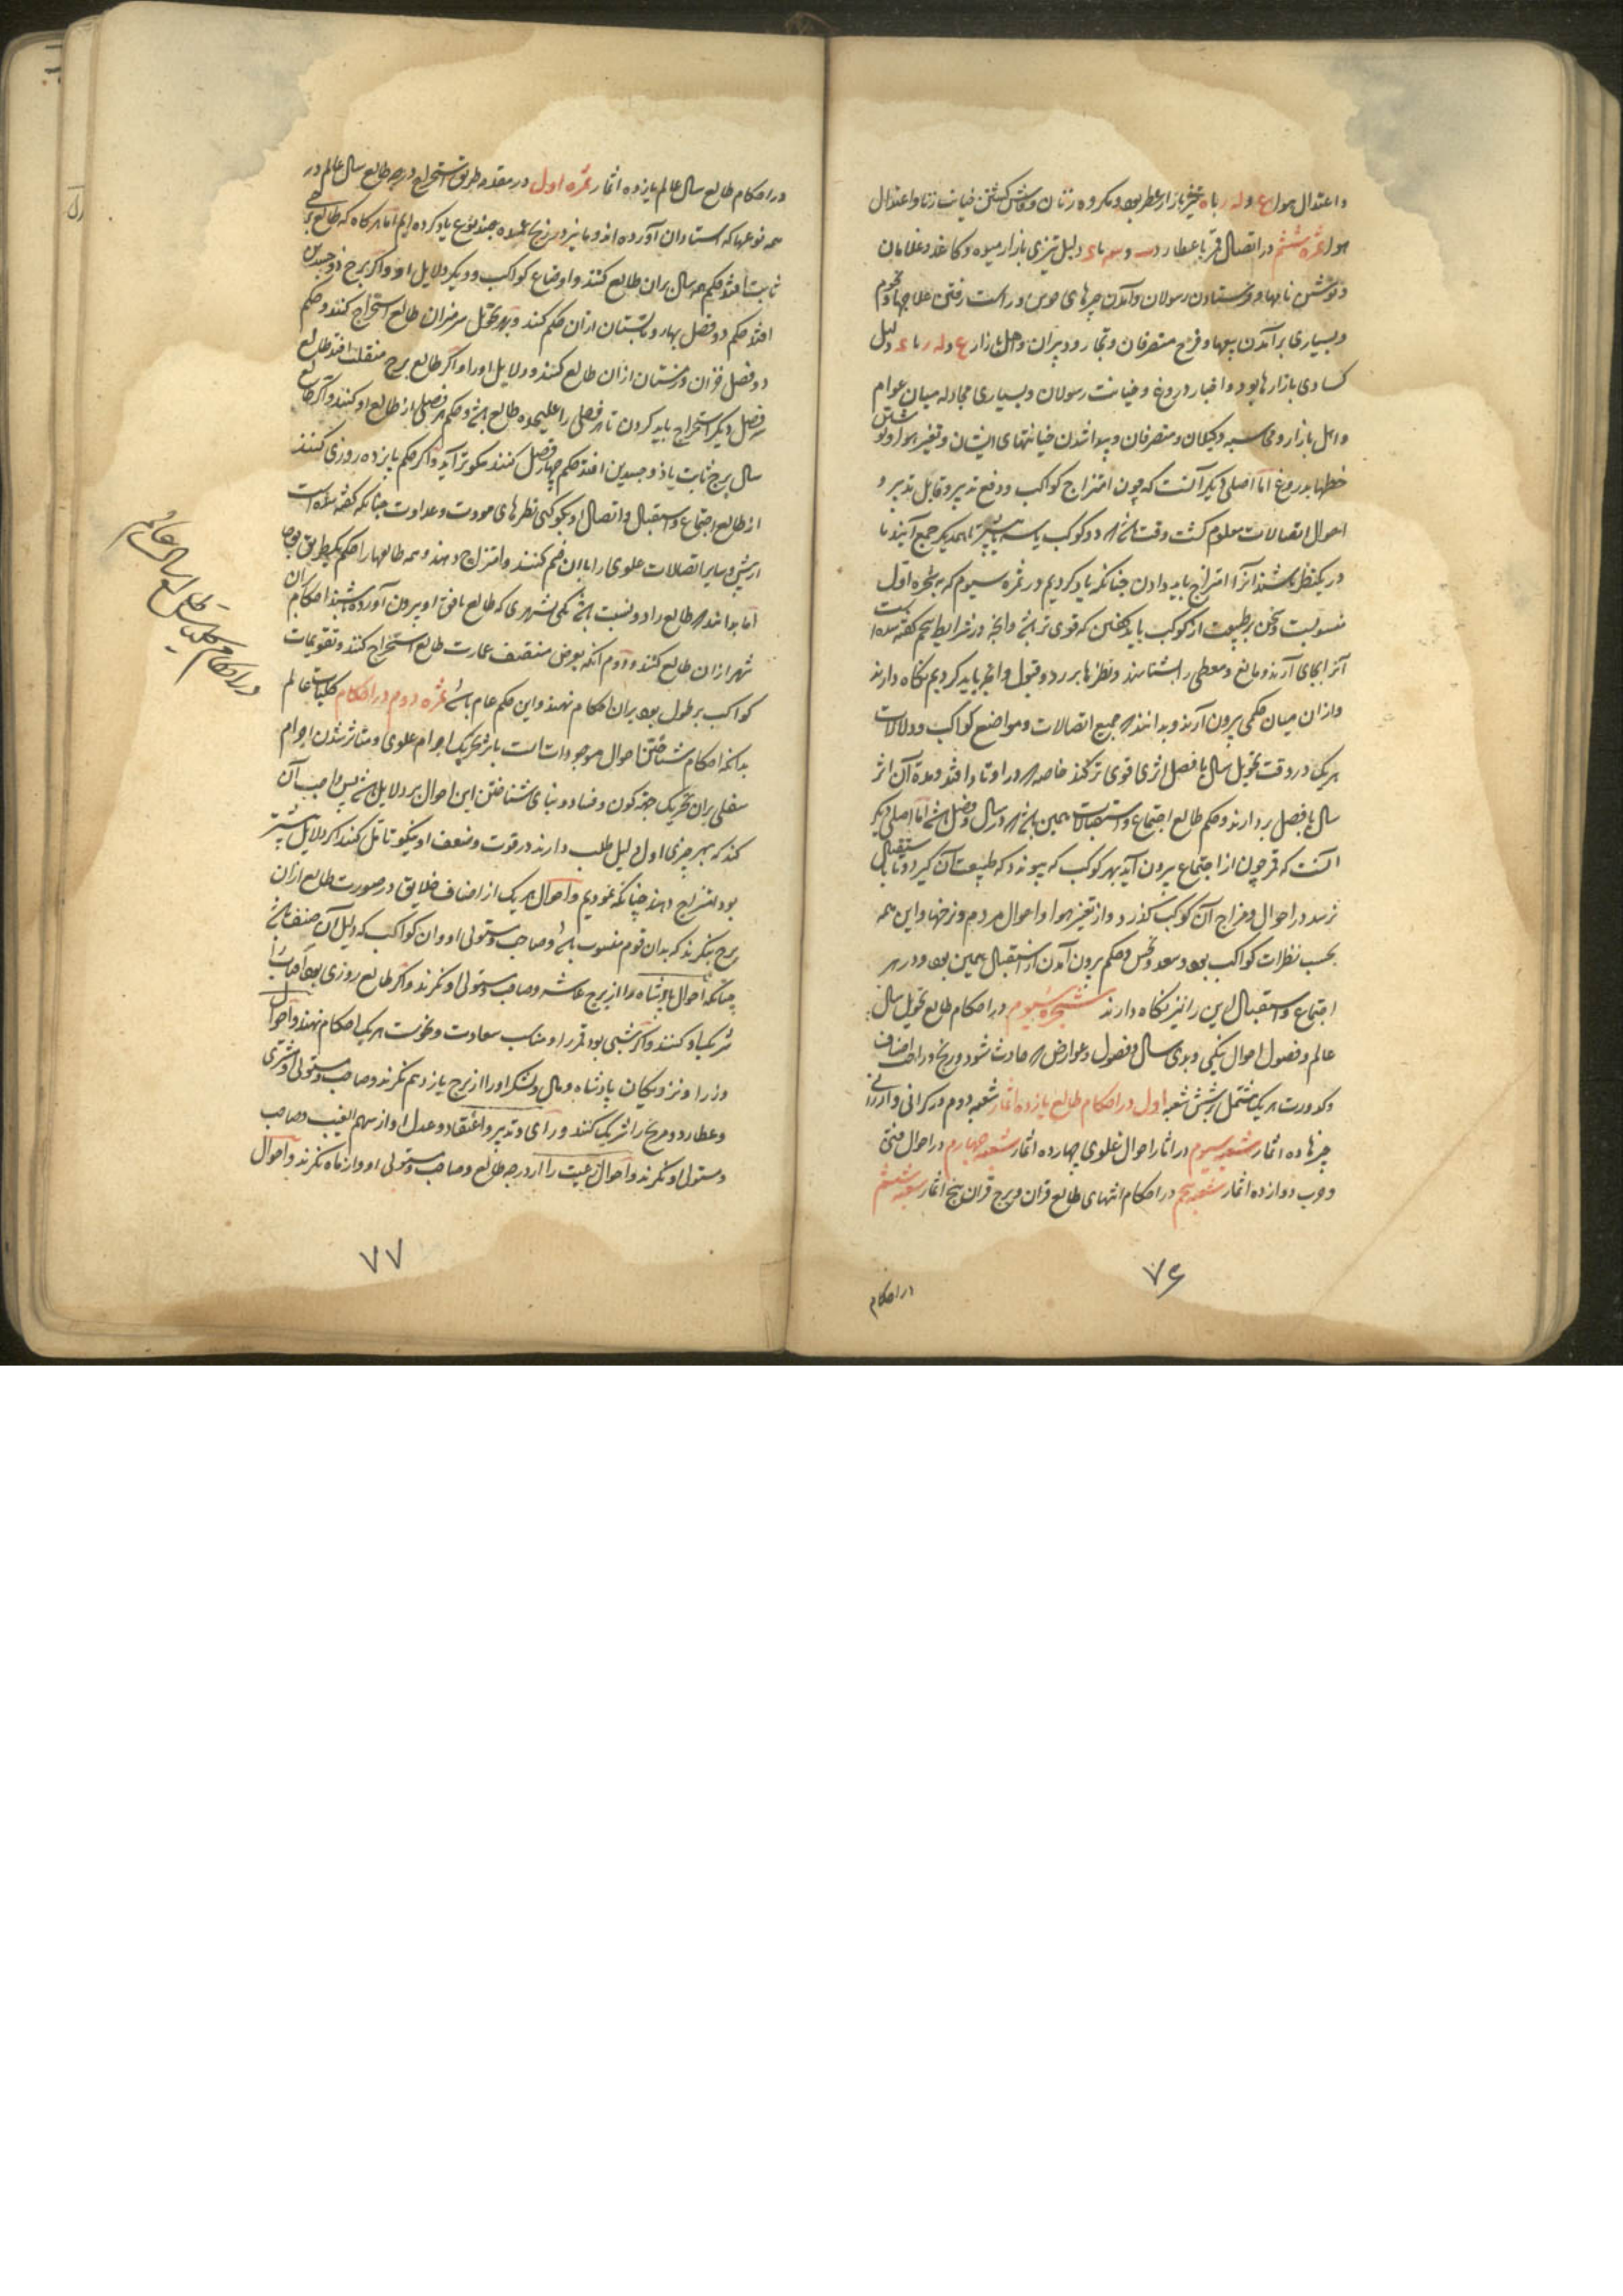 و اعتدال هوا ع و له ر با ه تیز بازار عطر بود و مکروه زنان و فاش گشتن خیانت زنا و اعتدال
هوا ثمره ششم در اتصال قمر با عطارد و با دلیل تیزی بازار میوه و کاغذ و غلامان
و نوشتن نامها و فرستادن رسولان و آمدن خبرهای خوش و راست رفتن
و بسیاری برآمدن بیعها و فرح متصرفان و تجار و دبیران و اهل بازار ع و له ر با دلیل
کسادی بازارها بود و اخبار دروغ و خیانت رسولان و بسیاری مجادله میان عوام
و اهل بازار و محاسبه وکیلان و متصرفان و پیدا شدن خیانتهای ایشان و تغیر هوا و نوشتن
خطها بدروغ اما اصلی دیگر آنست که چون امتزاج کواکب و دفع تدبیر و قابل تدبیر و
احوال اتصالات معلوم گشت وقت باشد که دو کوکب یا سه یا بیشتر با همدیگر جمع آیند یا
در یک نظر باشند آنرا امتزاج باید دادن چنانکه یاد کردیم در ثمره سیوم که بشجره اول
منسوبست و سخن بر طبیعت آن کوکب باید گفتن که قوی تر باشد و آنچه در شرایط پنجم گفته شده است
آنرا بجای آرند و مانع و معطی را بشناسند و نظرها بر رد و قبول و آنچه باید کردیم نگاه دارند
و از آن میان حکمی بیرون آرند و بدانند که جمیع اتصالات و مواضع کواکب و دلالات
هر یک در وقت تحویل سال یا فصل اثری قوی تر کند خاصه که در اوتاد افتد و مدة آن اثر
سال یا فصل بردارند و حکم طالع اجتماع و استقبالات همین باشد که در سال و فصل باشد اما اصلی دیگر
آنست که قمر چون از اجتماع بیرون آید بهر کوکب که پیوندد که طبیعت آن گیرد و تا باستقبال
نرسد در احوال و مزاج آن کوکب گذرد و از تغیر هوا و احوال مردم و نرخها و این همه
بحسب نظرات کواکب بود و سعد و نحس و حکم بیرون آمدن از استقبال همین بود و در هر
اجتماع و استقبال این را نیز نگاه دارند شجره سیوم در احکام طالع تحویل سال
عالم و فصول احوال نیکی و بدی سال و فصول و عوارض که حادث شود و رنج و راحت اصناف
و کدورت هر یک مشتمل بر شش شعبه اول در احکام طالع یازده اثمار شعبه دوم در گرانی و ارزانی
چیزها ده اثمار شعبه سیوم در آثار احوال علوی چهارده اثمار شعبه چهارم در احوال فتن
و حرب دوازده اثمار شعبه پنجم در احکام انتهای طالع قران و برج قران پنج اثمار شعبه ششم
۷۶
در احکام
در احکام طالع سال عالم یازده اثمار ثمره اول در مقدمه طریق استخراج درجه طالع سال عالم در
همه نوعها که استادان آورده اند و ما نیز در زیج عمده بچند نوع یاد کرده ایم اما هر گاه که طالع برجی
ثابت افتد حکم همه سال بر آن طالع کنند و اوضاع کواکب و دیگر دلایل او و اگر برج ذو جسدین
افتد حکم دو فصل بهار و تابستان از آن حکم کنند و بهر تحویل سر میزان طالع استخراج کنند و حکم
دو فصل خزان و زمستان از آن طالع کنند و دلایل او را و اگر طالع برج منقلب افتد طالع
هر فصل دیگر استخراج باید کردن تا هر فصلی را علیحده طالع باشد و حکم هر فصلی از طالع او کنند و اگر طالع
سال برج ثابت یا ذو جسدین افتد حکم چهار فصل کنند نیکوتر آید و اگر حکم پانزده روزی کنند
از طالع اجتماع و استقبال و اتصال او بکوکبی نظرهای مودت و عداوت چنانکه گفته شده است
از پیش و سایر اتصالات علوی را با آن ضم کنند و امتزاج دهند و همه طالعها را حکم یک طریق بود
اما بدانند که طالع را دو نسبت باشد یکی شهری که طالع بافق او بیرون آورده باشند احکام آن
شهر از آن طالع کنند و دوم آنکه بعرض منتصف عمارت طالع استخراج کنند و تقویمات
کواکب بر طول بود بر آن احکام نهند و این حکم عام باشد ثمره دوم در احکام کلیات عالم
بدانکه احکام شناختن احوال موجودات است باثر تحریک اجرام علوی و متاثر شدن اجرام
سفلی بر آن تحریک جهة کون و فساد و بنای شناختن این احوال بر دلایل باشد پس واجب آن
کند که بهر چیزی اول دلیل طلب دارند در قوت و ضعف او نیکو تامل کنند اگر دلایل بیشتر
بود امتزاج دهند چنانکه نمودیم و احوال هر یک از اصناف خلایق در صورت طالع از آن
برج بنگرند که بدان قوم منسوب باشد و صاحب و مستولی او و آن کواکب که دلیل آن صنف باشد
چنانکه احوال پادشاه را از برج عاشر و صاحب و مستولی او نگرند و اگر طالع روزی بود آفتاب را
شریک او کنند و اگر شبی بود قمر را و مناسب سعادت و نحوست هر یک احکام نهند و احوال
وزرا و نزدیکان پادشاه و مال و لشکر او را از برج یازدهم نگرند و صاحب و مستولی و مشتری
و عطارد و مریخ را شریک کنند و رای و تدبیر و اعتقاد و عدل او از سهم الغیب و صاحب
و مستولی او نگرند و احوال رعیت را از درجه طالع و صاحب و مستولی او و از ماه نگرند و احوال
۷۷
در احکام کلیات طالع سال عالم